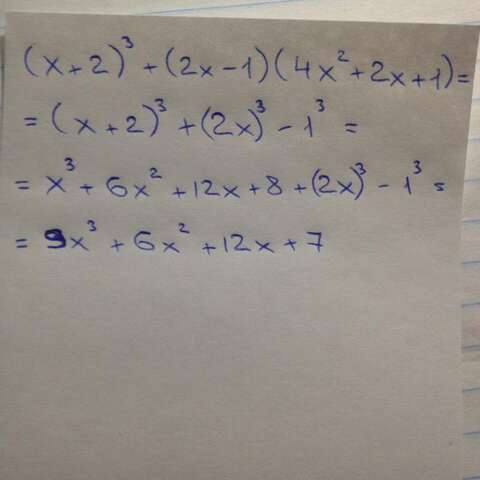 (x+2)³+(2x-1)(4x²+2x+1)=
=(x+2)³+(2x)³-1³=
=x³+6x²+12x+8+(2x)³-1³=
=9x³+6x²+12x+7